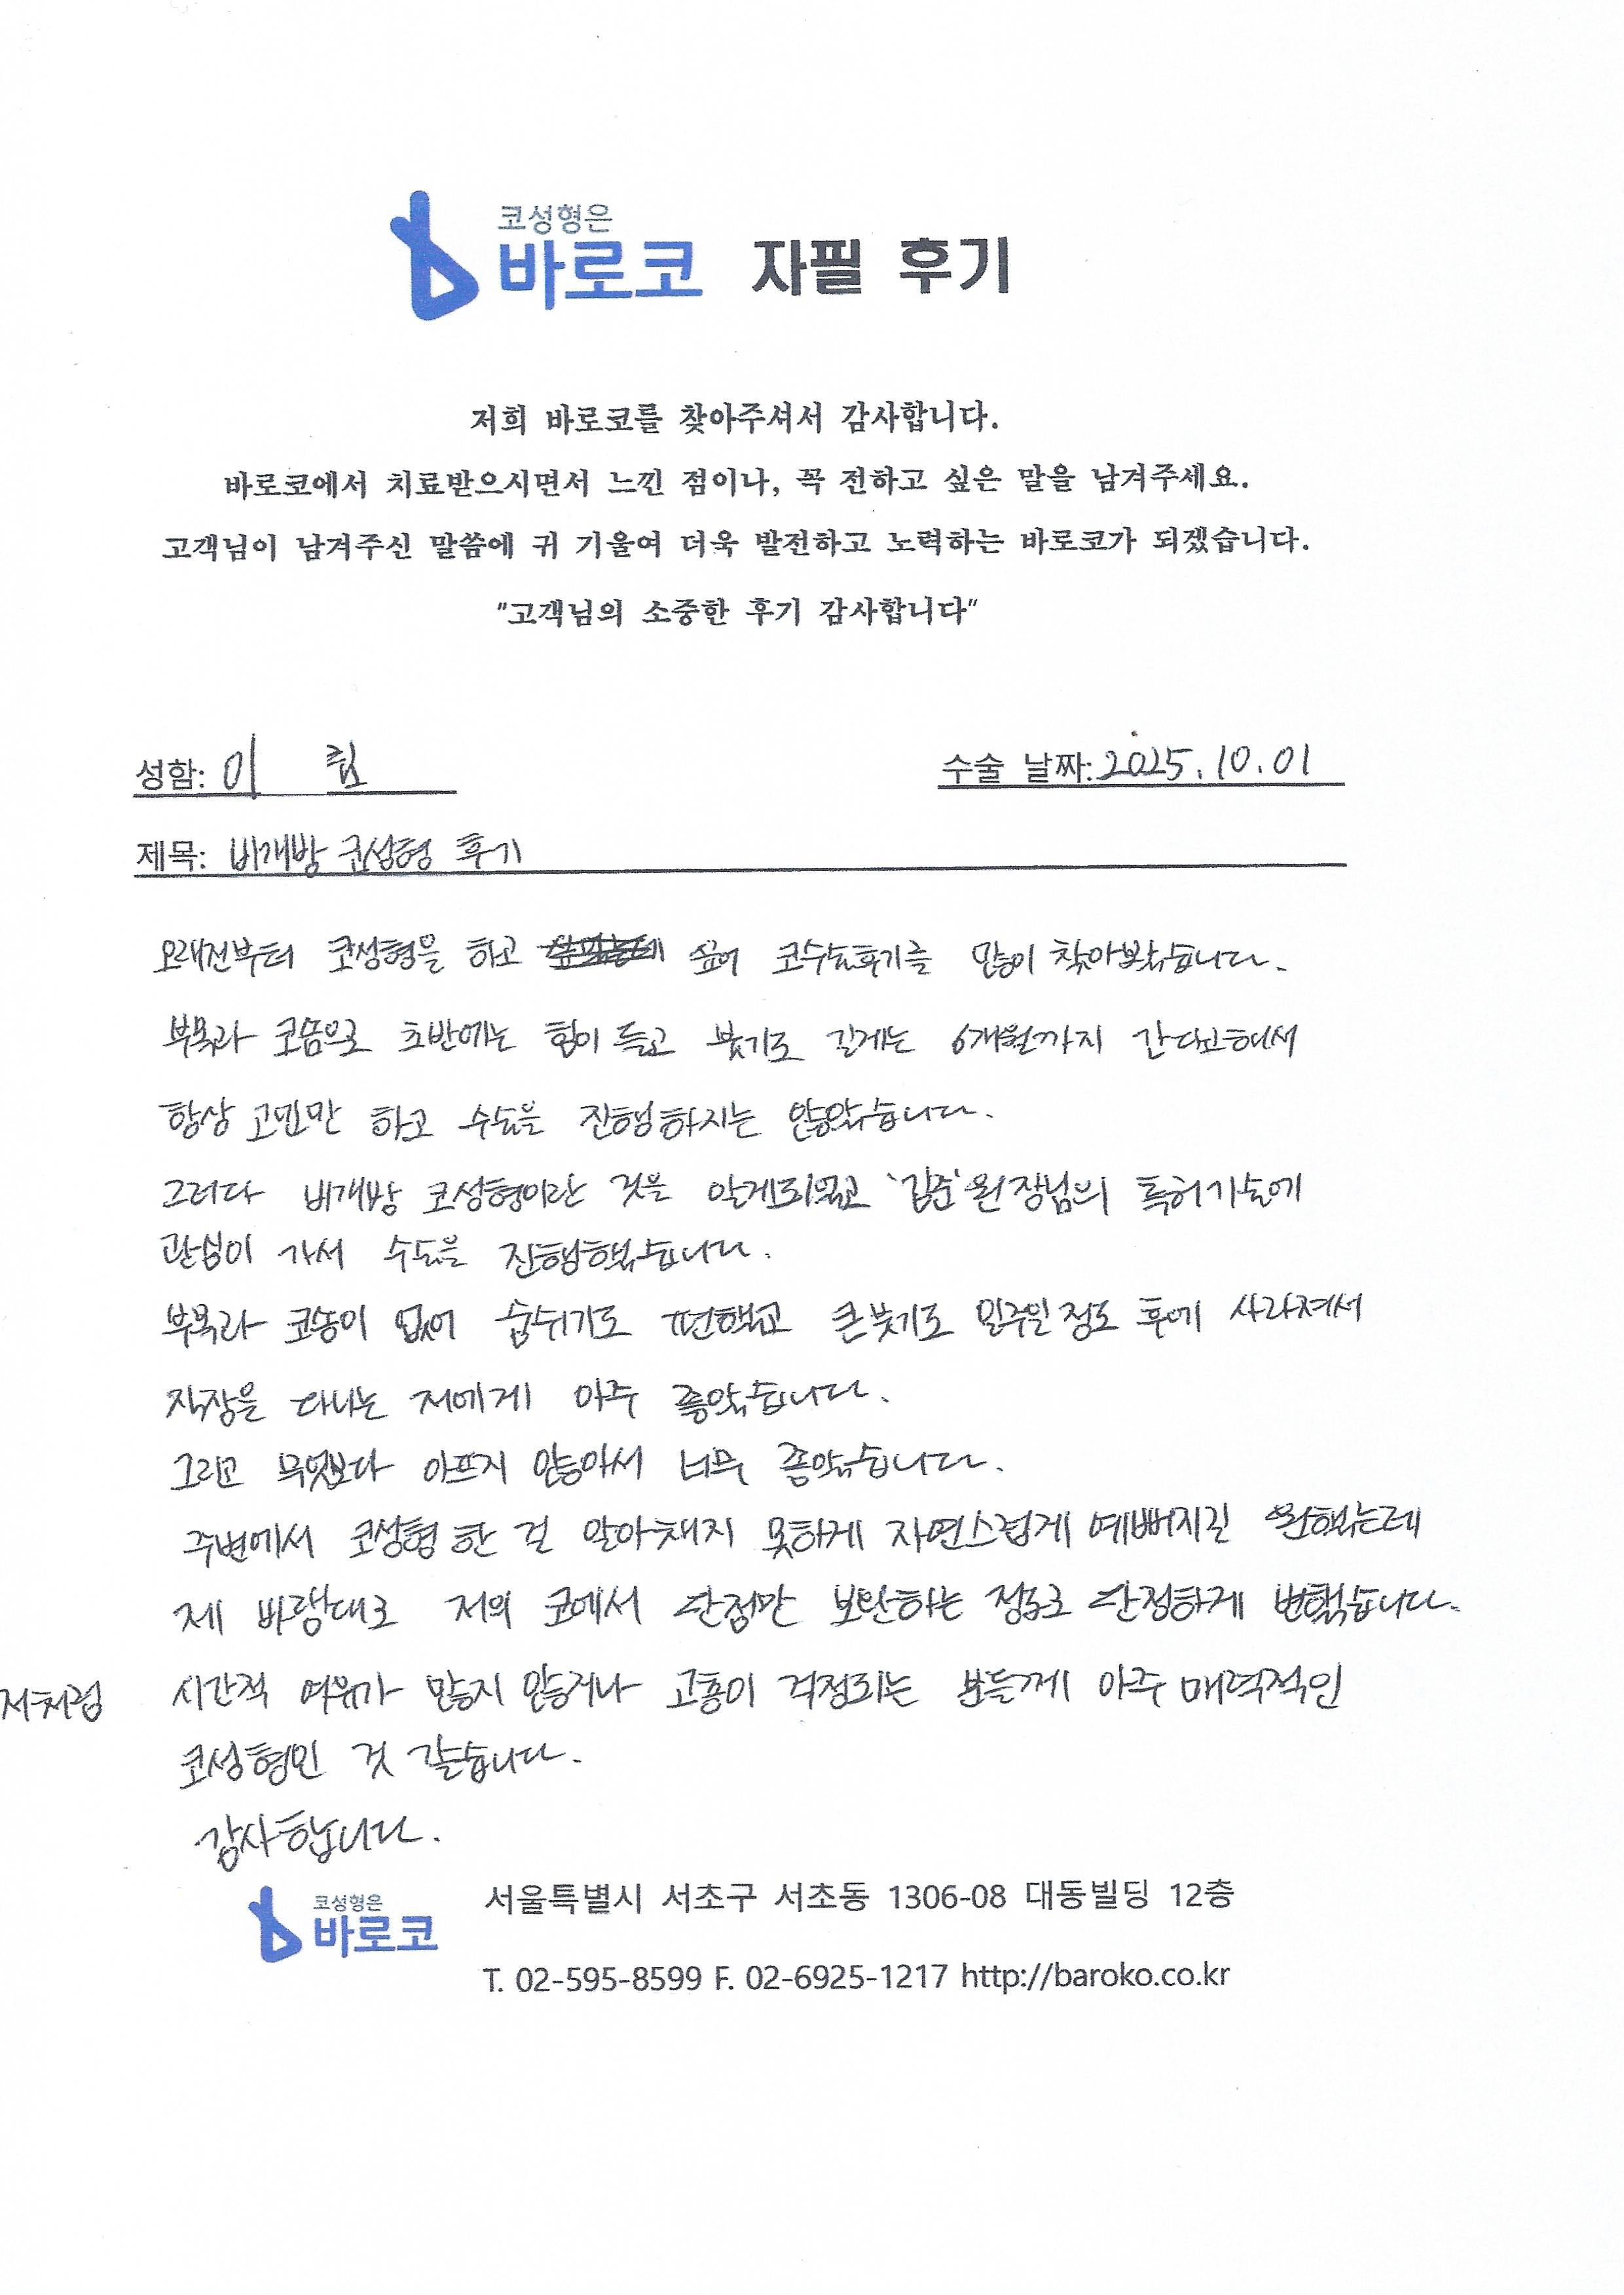 코성형은
바로코 자필 후기
저희 바로코를 찾아주셔서 감사합니다.
바로코에서 치료받으시면서 느낀 점이나, 꼭 전하고 싶은 말을 남겨주세요.
고객님이 남겨주신 말씀에 귀 기울여 더욱 발전하고 노력하는 바로코가 되겠습니다.
"고객님의 소중한 후기 감사합니다"
성함: 이 수술 날짜: 2025.10.01
제목: 비개방 코성형 후기
오래전부터 코성형을 하고 싶어 코수술후기를 많이 찾아봤습니다.
부목과 코솜으로 초반에는 힘이 들고 붓기도 길게는 6개월까지 간다고해서
항상 고민만 하고 수술을 진행하지는 않았습니다.
그러다 비개방 코성형이란 것을 알게되었고 '김준' 원장님의 특허기술에
관심이 가서 수술을 진행했습니다.
부목과 코솜이 없어 숨쉬기도 편했고 큰붓기도 일주일정도 후에 사라져서
직장을 다니는 저에게 아주 좋았습니다.
그리고 무엇보다 아프지 않아서 너무 좋았습니다.
주변에서 코성형 한 걸 알아채지 못하게 자연스럽게 예뻐지길 원했는데
제 바램대로 저의 코에서 단점만 보완하는 정도로 단정하게 변했습니다.
저처럼 시간적 여유가 많지 않거나 고통이 걱정되는 분들께 아주 매력적인
코성형인 것 같습니다.
감사합니다.
코성형은
바로코
서울특별시 서초구 서초동 1306-08 대동빌딩 12층
T. 02-595-8599 F. 02-6925-1217 http://baroko.co.kr